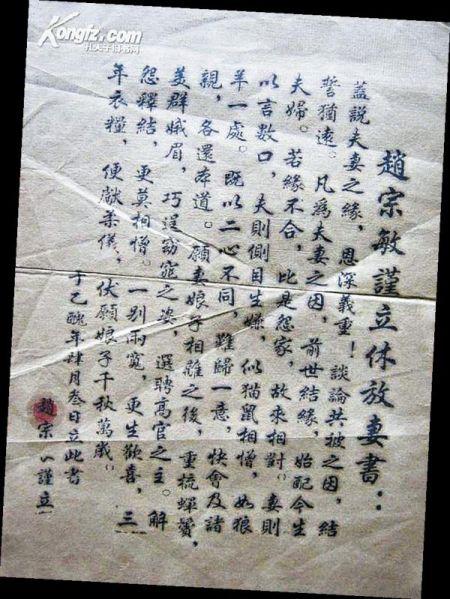 Kongfz.com
孔夫子旧书网
趙宗敏謹立休放妻書：：
蓋説夫妻之緣，恩深義重！談論共被之因，結
誓猶遠。凡爲夫妻之因，前世結緣，始配今生
夫婦。若緣不合，比是怨家，故來相對。妻則
以言數口，夫則側目生嫌，似猫鼠相憎，如狼
羊一處。既以二心不同，難歸一意，快會及諸
親，各還本道。願妻娘子相離之後，重梳蟬鬢，
美群娥眉，巧逞窈窕之姿，選聘高官之主。解
怨釋結，更莫相憎。一别兩寬，更生歡喜，三
年衣糧，便獻柔儀，伏願娘子千秋萬歲。
于乙醜年肆月叁日立此書
趙宗謹立